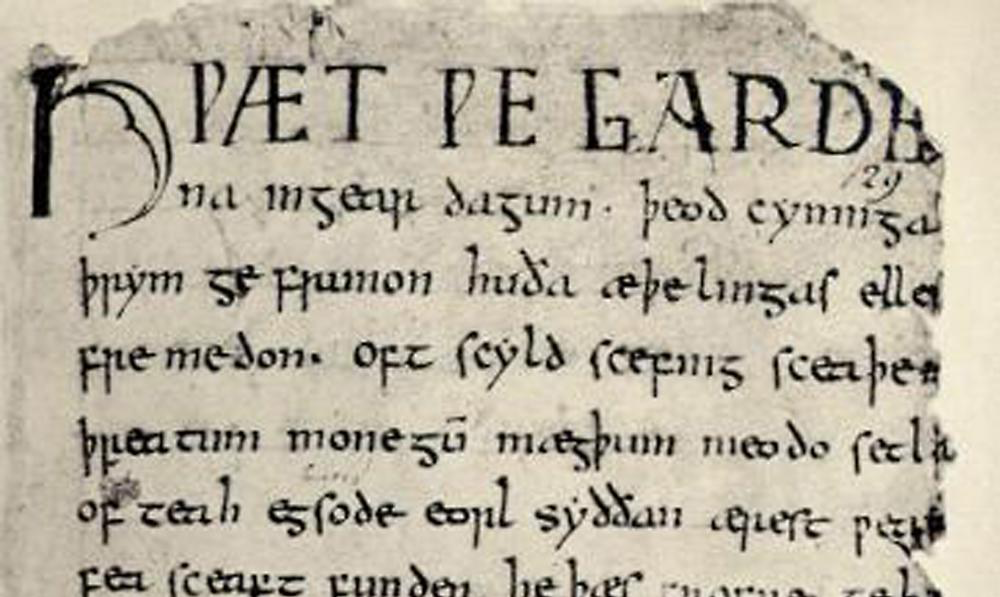 HǷÆT ǷE GARDE
na ingear dagum. þeod cyninga
þrym ge frunon huða æþelingas elle
fre medon. oft scyld scefing sceaþe
þreatum monegū mægþum meodo setla
of teah egsode eorl syððan ærest ƿear
fea sceaft funden he þæs